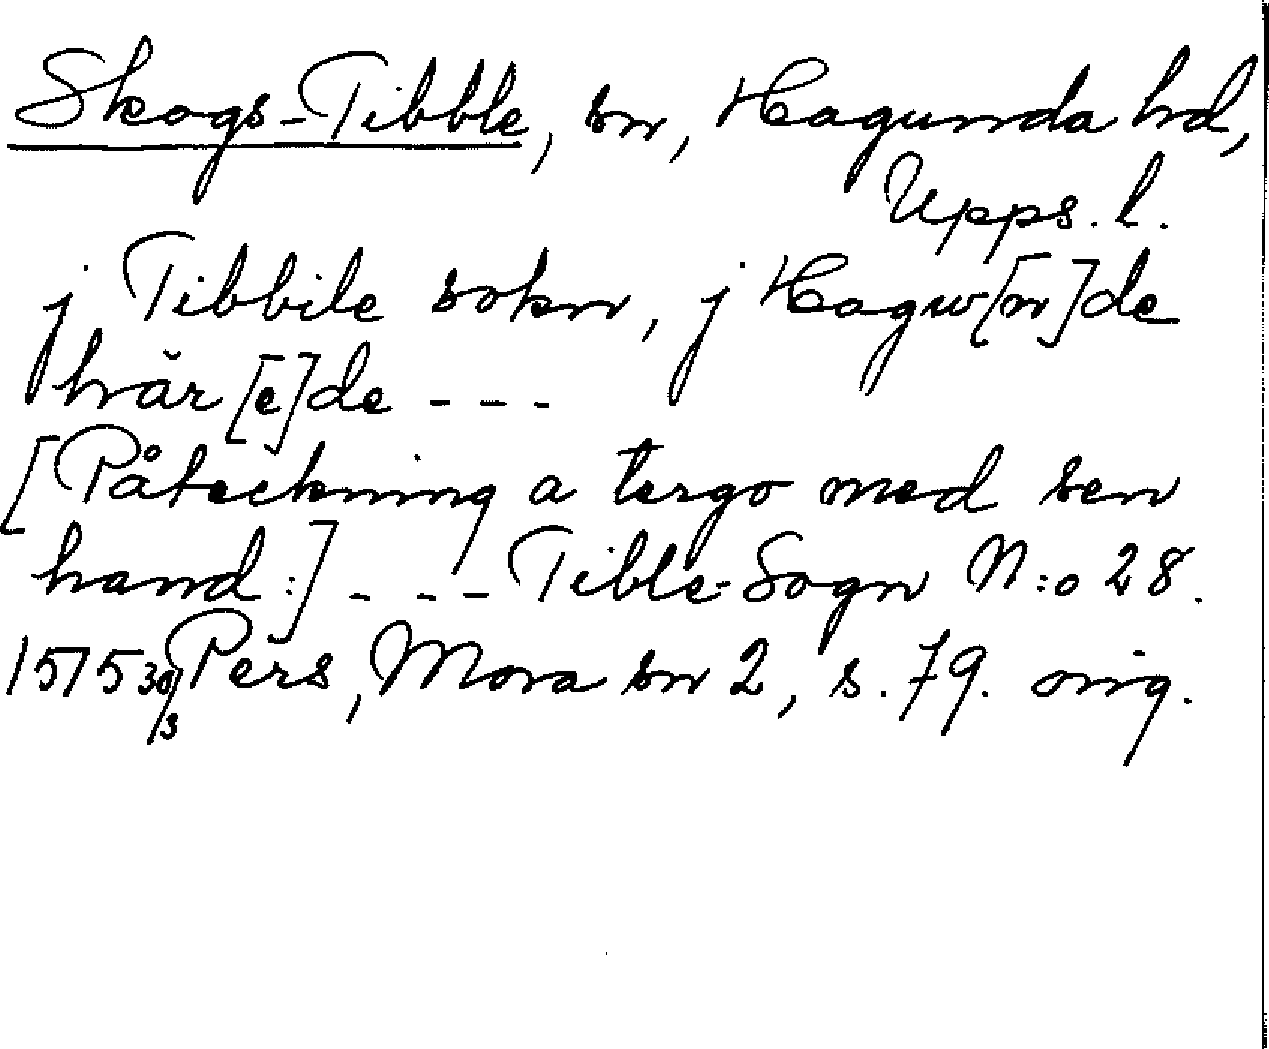 Skogs-Tibble, sn, Hagunda hd,
Upps. l.
j Tibbile sokn, j Hagw[n]de
hvär[e]de - - -
[Påteckning a tergo med sen
hand:] - - - Tible-Sogn N:o 28.
1575 30/3 Pers, Mora sn 2, s. 79. orig.